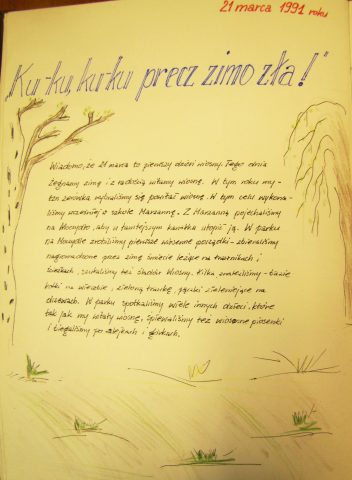 21 marca 1991 roku
„Ku-ku, ku-ku precz zimo zła!"
Wiadomo, że 21 marca to pierwszy dzień wiosny. Tego dnia
żegnamy zimę i z radością witamy wiosnę. W tym roku my-
też zerówka wybraliśmy się powitać wiosnę. W tym celu wykona-
liśmy wcześniej w szkole Marzannę. Z Marzanną pojechaliśmy
na Moczydło, aby w tamtejszym kanałku utopić ją. W parku
na Moczydle zrobiliśmy pierwsze wiosenne porządki - zbieraliśmy
nagromadzone przez zimę śmiecie leżące na trawnikach i
ścieżkach, szukaliśmy też śladów wiosny. Kilka znaleźliśmy - bazie
kotki na wierzbie, zieloną trawkę, pączki zieleniejące na
drzewach. W parku spotkaliśmy wiele innych dzieci, które
tak jak my witały wiosnę, śpiewaliśmy też wiosenne piosenki
i biegaliśmy po alejkach i górkach.